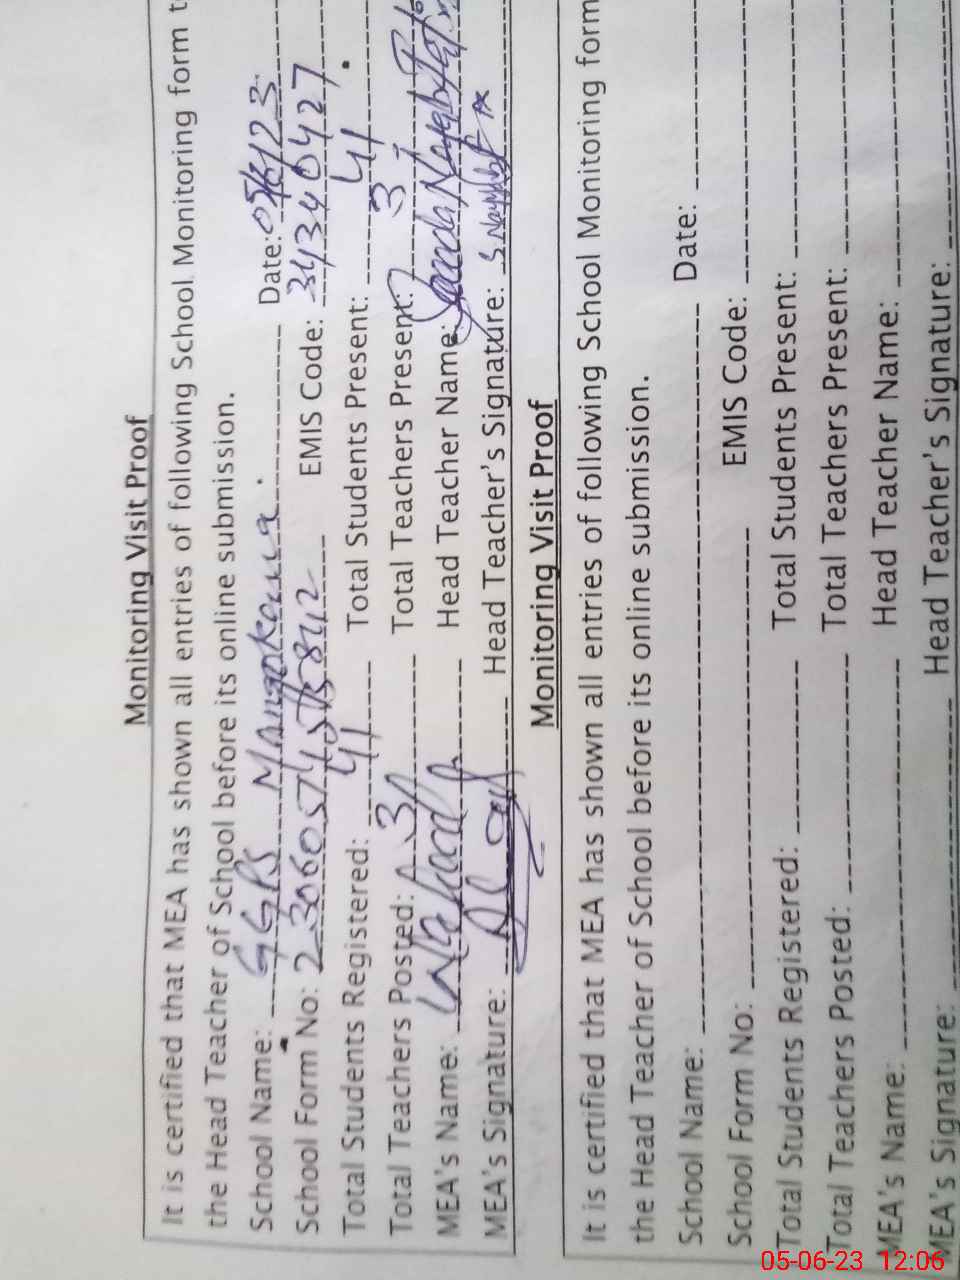 Monitoring Visit Proof
It is certified that MEA has shown all entries of following School Monitoring form t
the Head Teacher of School before its online submission.
School Name: GGPS Date: 05/6/23
School Form No: EMIS Code: 34340427
Total Students Registered: 41 Total Students Present: 41
Total Teachers Posted: 3 Total Teachers Present: 3
MEA's Name: Head Teacher Name:
MEA's Signature: Head Teacher's Signature:
Monitoring Visit Proof
It is certified that MEA has shown all entries of following School Monitoring form
the Head Teacher of School before its online submission.
School Name: Date:
School Form No: EMIS Code:
Total Students Registered: Total Students Present:
Total Teachers Posted: Total Teachers Present:
MEA's Name: Head Teacher Name:
MEA's Signature: Head Teacher's Signature:
05-06-23 12:06